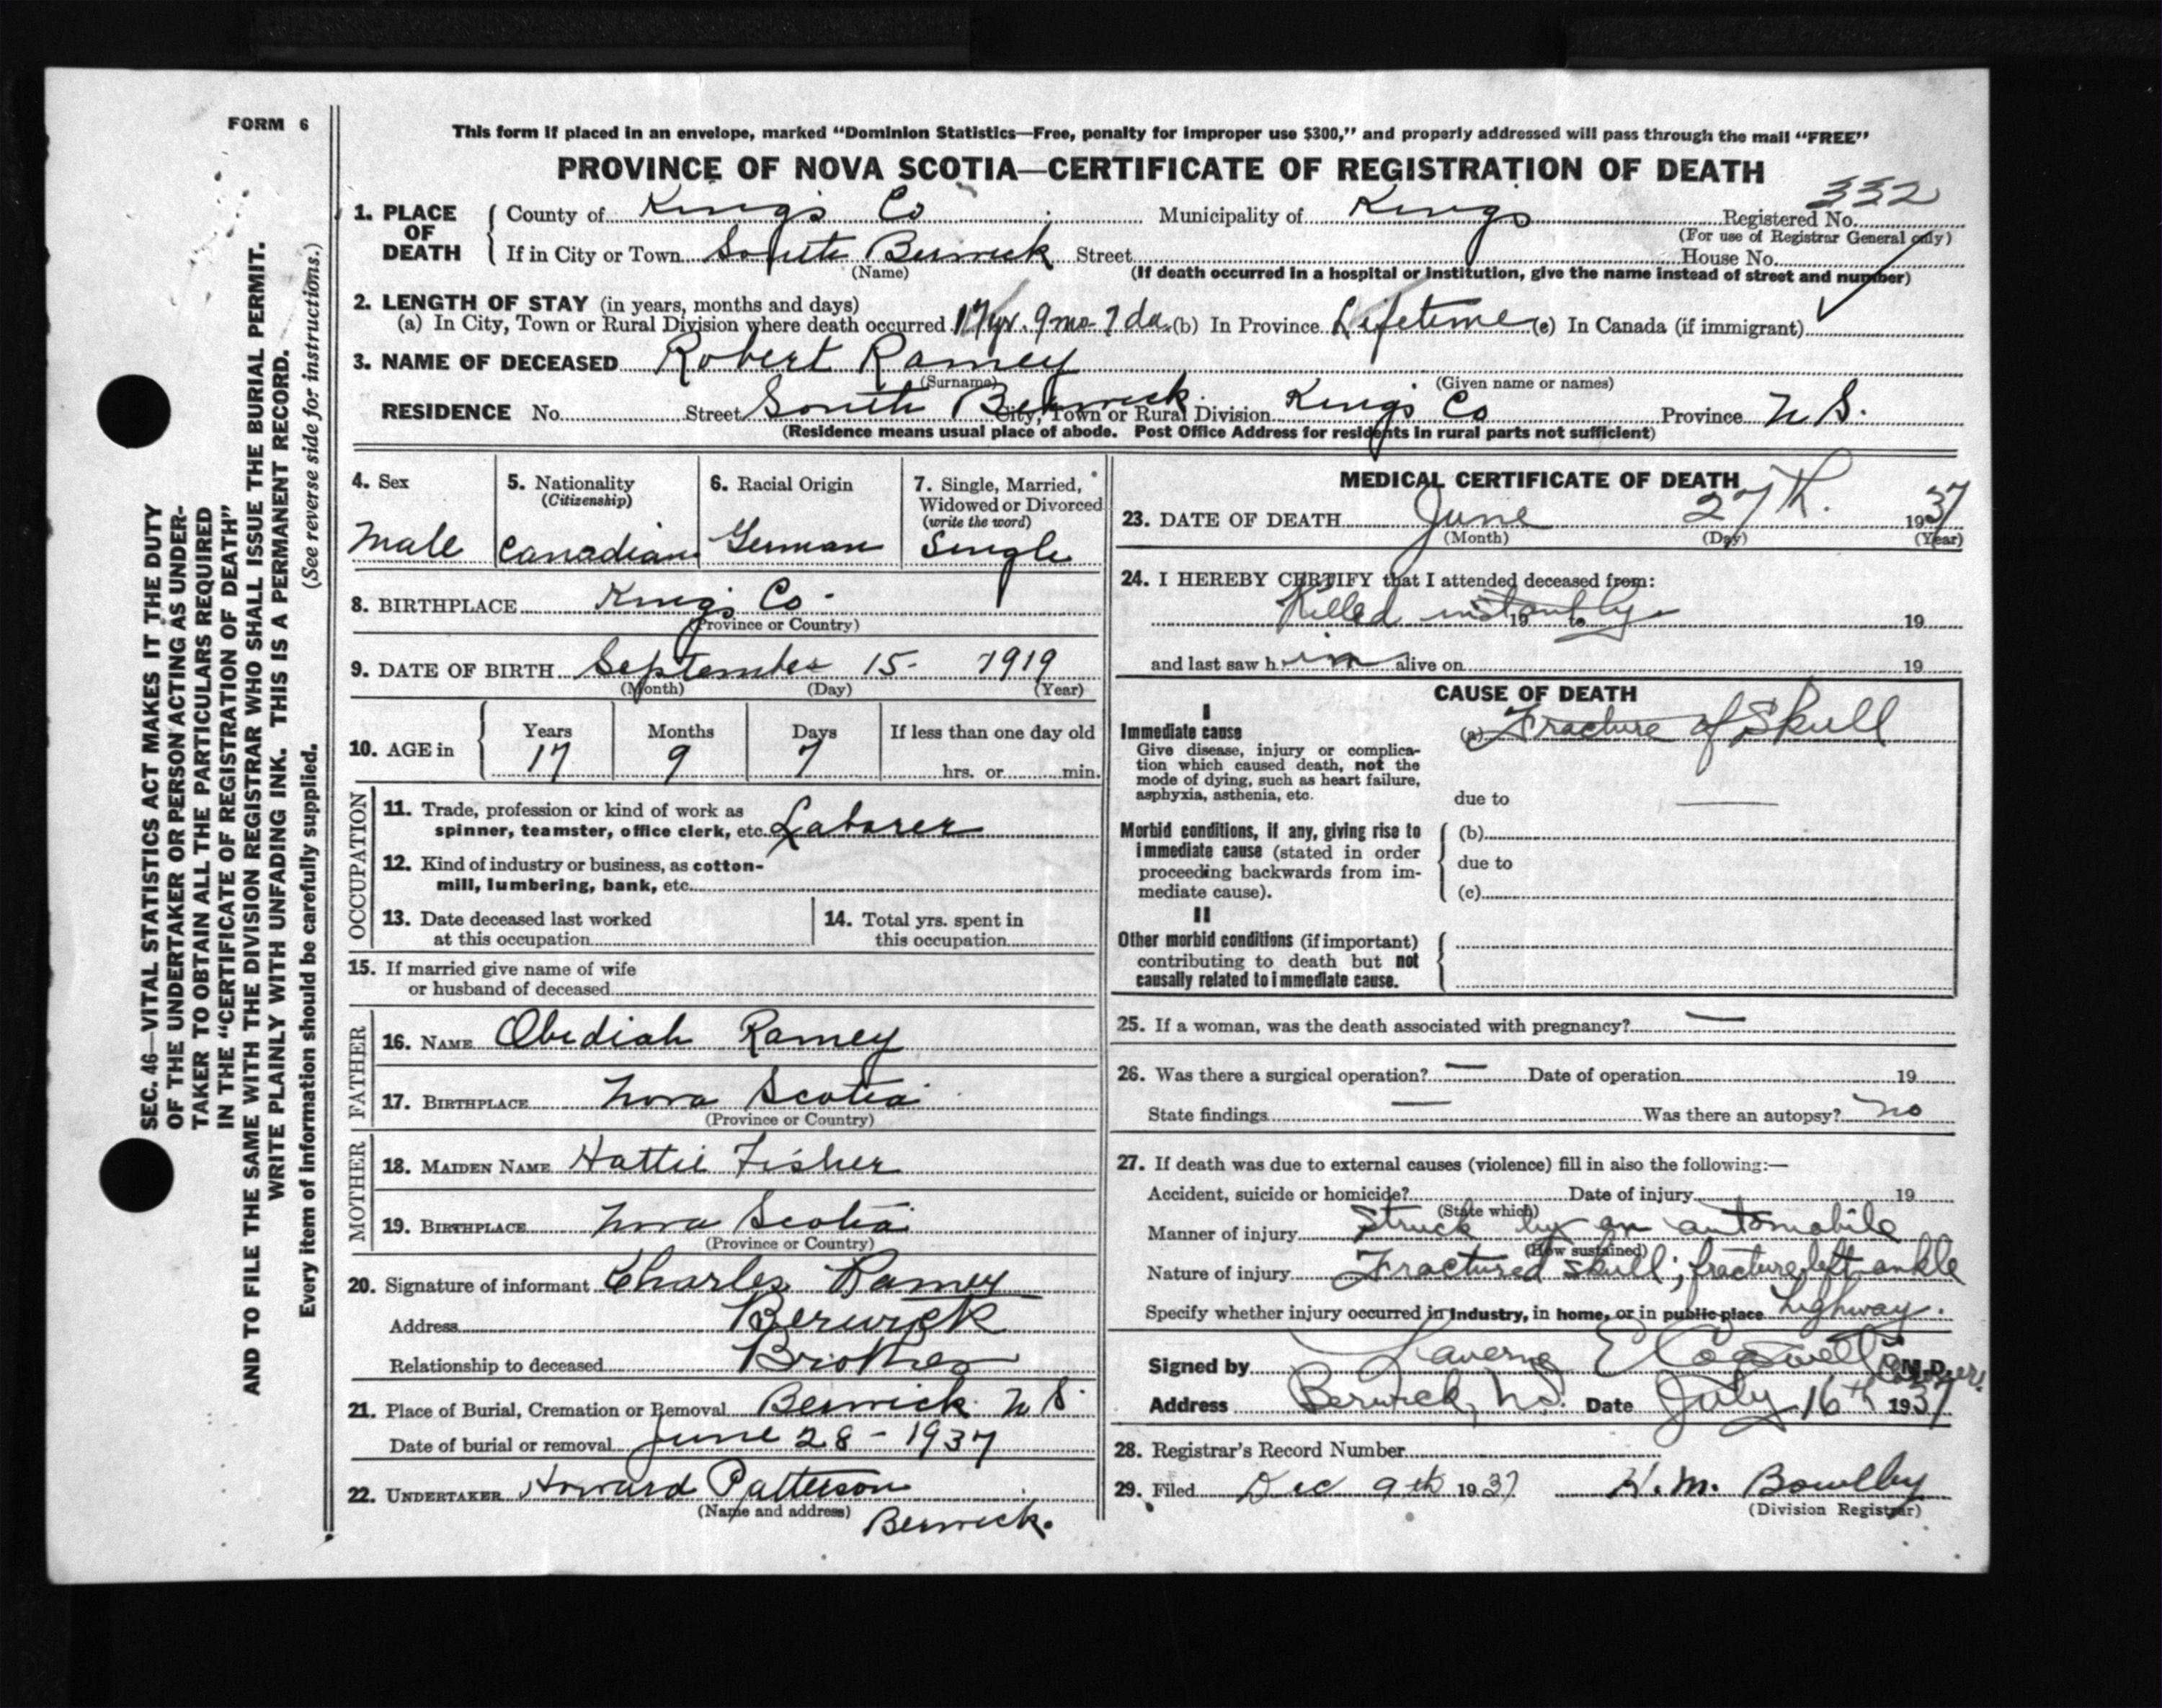 FORM 6
This form if placed in an envelope, marked "Dominion Statistics—Free, penalty for improper use $300," and properly addressed will pass through the mail "FREE"
PROVINCE OF NOVA SCOTIA—CERTIFICATE OF REGISTRATION OF DEATH
332
1. PLACE OF DEATH County of Kings Co Municipality of Kings Registered No.
(For use of Registrar General only)
If in City or Town South Berwick Street House No.
(Name) (If death occurred in a hospital or institution, give the name instead of street and number)
2. LENGTH OF STAY (in years, months and days)
(a) In City, Town or Rural Division where death occurred 17 yr. 9 mo 7 da. (b) In Province Lifetime (c) In Canada (if immigrant)
3. NAME OF DECEASED Robert Ramey
(Surname) (Given name or names)
RESIDENCE No. Street South Berwick City, Town or Rural Division Kings Co Province N S.
(Residence means usual place of abode. Post Office Address for residents in rural parts not sufficient)
4. Sex
Male
5. Nationality
(Citizenship)
Canadian
6. Racial Origin
German
7. Single, Married, Widowed or Divorced
(write the word)
Single
8. BIRTHPLACE Kings Co.
(Province or Country)
9. DATE OF BIRTH September 15 - 1919
(Month) (Day) (Year)
10. AGE in Years Months Days If less than one day old
17 9 7 hrs. or min.
OCCUPATION
11. Trade, profession or kind of work as
spinner, teamster, office clerk, etc. Laborer
12. Kind of industry or business, as cotton-
mill, lumbering, bank, etc.
13. Date deceased last worked
at this occupation
14. Total yrs. spent in
this occupation
15. If married give name of wife
or husband of deceased
FATHER
16. NAME Obediah Ramey
17. BIRTHPLACE Nova Scotia
(Province or Country)
MOTHER
18. MAIDEN NAME Hattie Fisher
19. BIRTHPLACE Nova Scotia
(Province or Country)
20. Signature of informant Charles Ramey
Address Berwick
Relationship to deceased Brother
21. Place of Burial, Cremation or Removal Berwick N S
Date of burial or removal June 28 - 1937
22. UNDERTAKER Howard Patterson
(Name and address) Berwick.
MEDICAL CERTIFICATE OF DEATH
23. DATE OF DEATH June 27th. 1937
(Month) (Day) (Year)
24. I HEREBY CERTIFY that I attended deceased from:
Killed instantly 19 to 19
and last saw him alive on 19
CAUSE OF DEATH
I
Immediate cause (a) Fracture of Skull
Give disease, injury or complica-
tion which caused death, not the
mode of dying, such as heart failure,
asphyxia, asthenia, etc.
due to —
Morbid conditions, if any, giving rise to (b)
immediate cause (stated in order
proceeding backwards from im- due to
mediate cause). (c)
II
Other morbid conditions (if important)
contributing to death but not
causally related to immediate cause.
25. If a woman, was the death associated with pregnancy? —
26. Was there a surgical operation? — Date of operation 19
State findings — Was there an autopsy? no
27. If death was due to external causes (violence) fill in also the following:—
Accident, suicide or homicide? Date of injury 19
(State which)
Manner of injury Struck by an automobile
(How sustained)
Nature of injury Fractured skull; fracture left ankle
Specify whether injury occurred in industry, in home, or in public place highway.
Signed by Laverne E Cogswell M.D. Coroner.
Address Berwick, N.S. Date July 16th 1937
28. Registrar's Record Number
29. Filed Dec 9th 1937 H. M. Bowlby
(Division Registrar)
SEC. 46—VITAL STATISTICS ACT MAKES IT THE DUTY
OF THE UNDERTAKER OR PERSON ACTING AS UNDER-
TAKER TO OBTAIN ALL THE PARTICULARS REQUIRED
IN THE "CERTIFICATE OF REGISTRATION OF DEATH"
AND TO FILE THE SAME WITH THE DIVISION REGISTRAR WHO SHALL ISSUE THE BURIAL PERMIT.
WRITE PLAINLY WITH UNFADING INK. THIS IS A PERMANENT RECORD.
Every item of information should be carefully supplied. (See reverse side for instructions.)